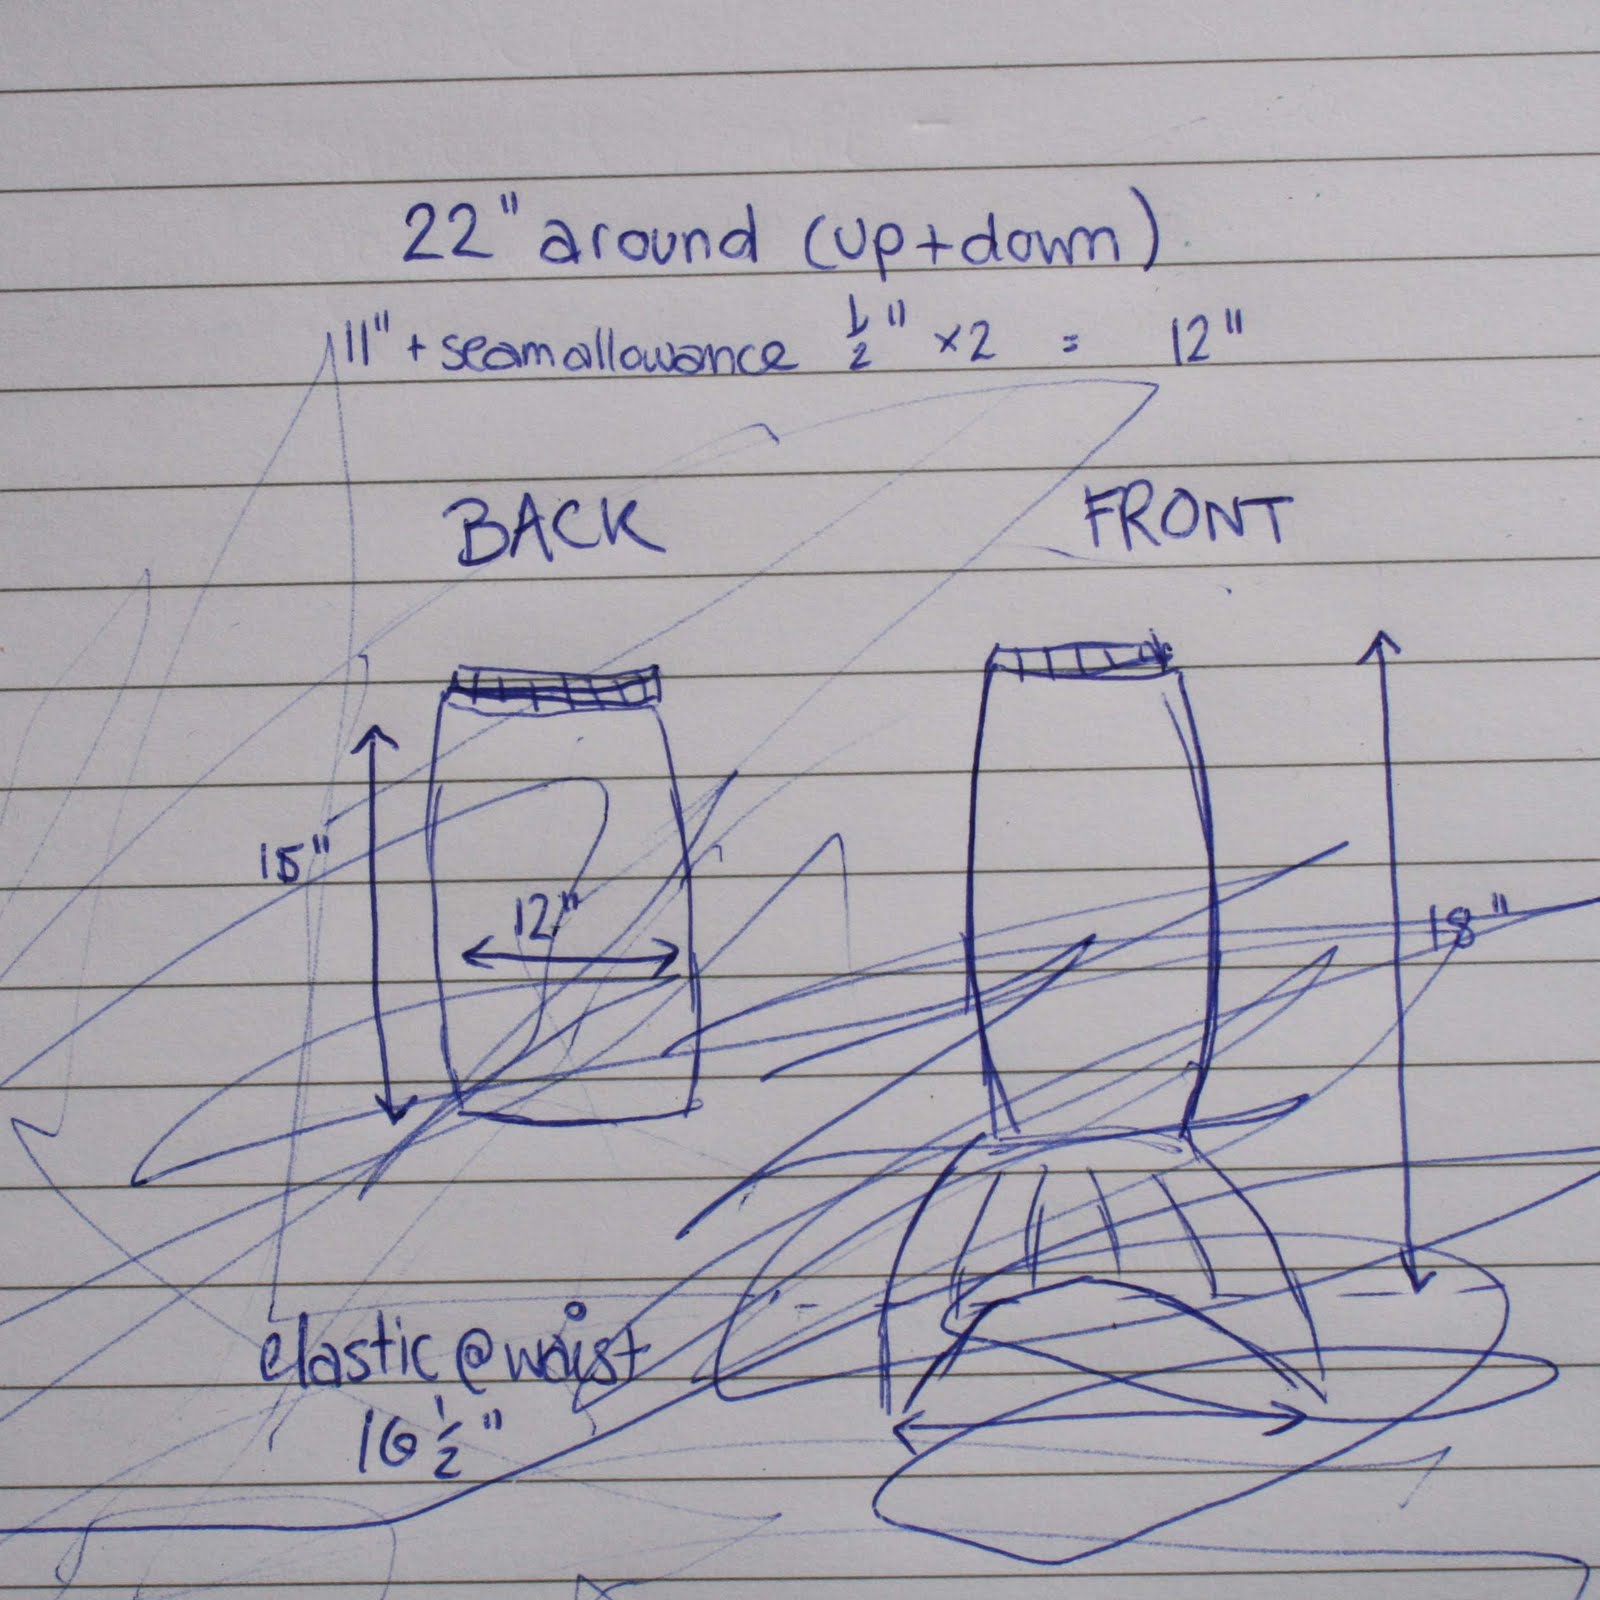 22" around (up+down)
11" + seam allowance ½" ×2 = 12"
BACK
FRONT
15"
12"
18"
elastic @ waist
16 ½"